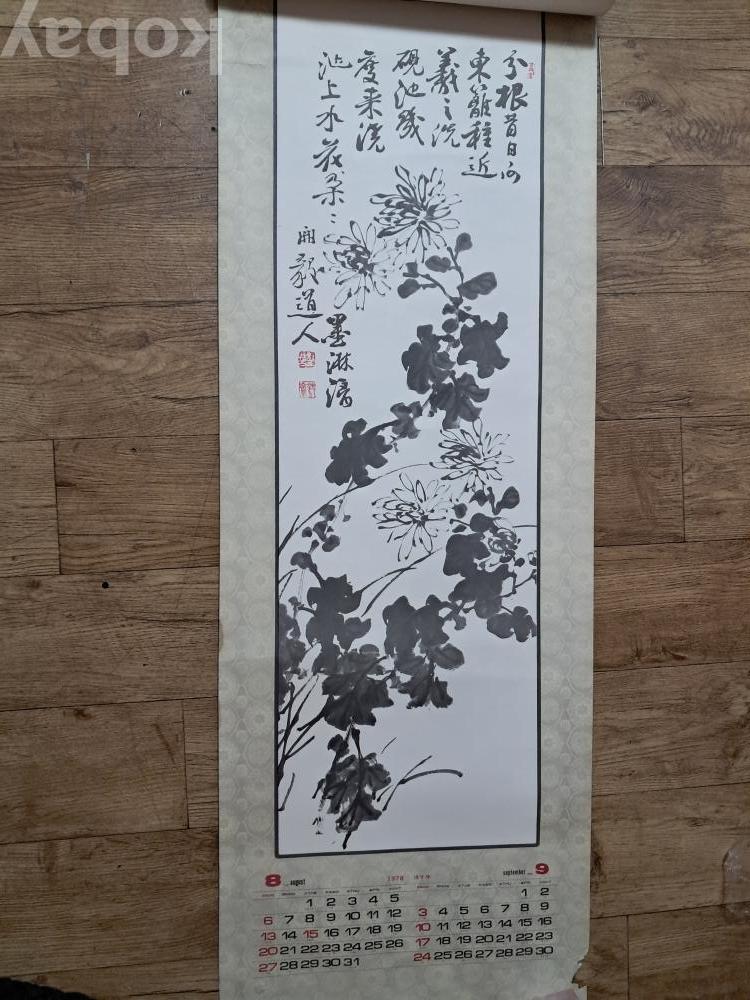 kobay
分根昔日向
東籬種近
羲之洗
硯池幾
度来洗
池上水花朶〻
墨淋漓
毅道人
8 august 1978 september 9
1 2 3 4 5 1 2
6 7 8 9 10 11 12 3 4 5 6 7 8 9
13 14 15 16 17 18 19 10 11 12 13 14 15 16
20 21 22 23 24 25 26 17 18 19 20 21 22 23
27 28 29 30 31 24 25 26 27 28 29 30